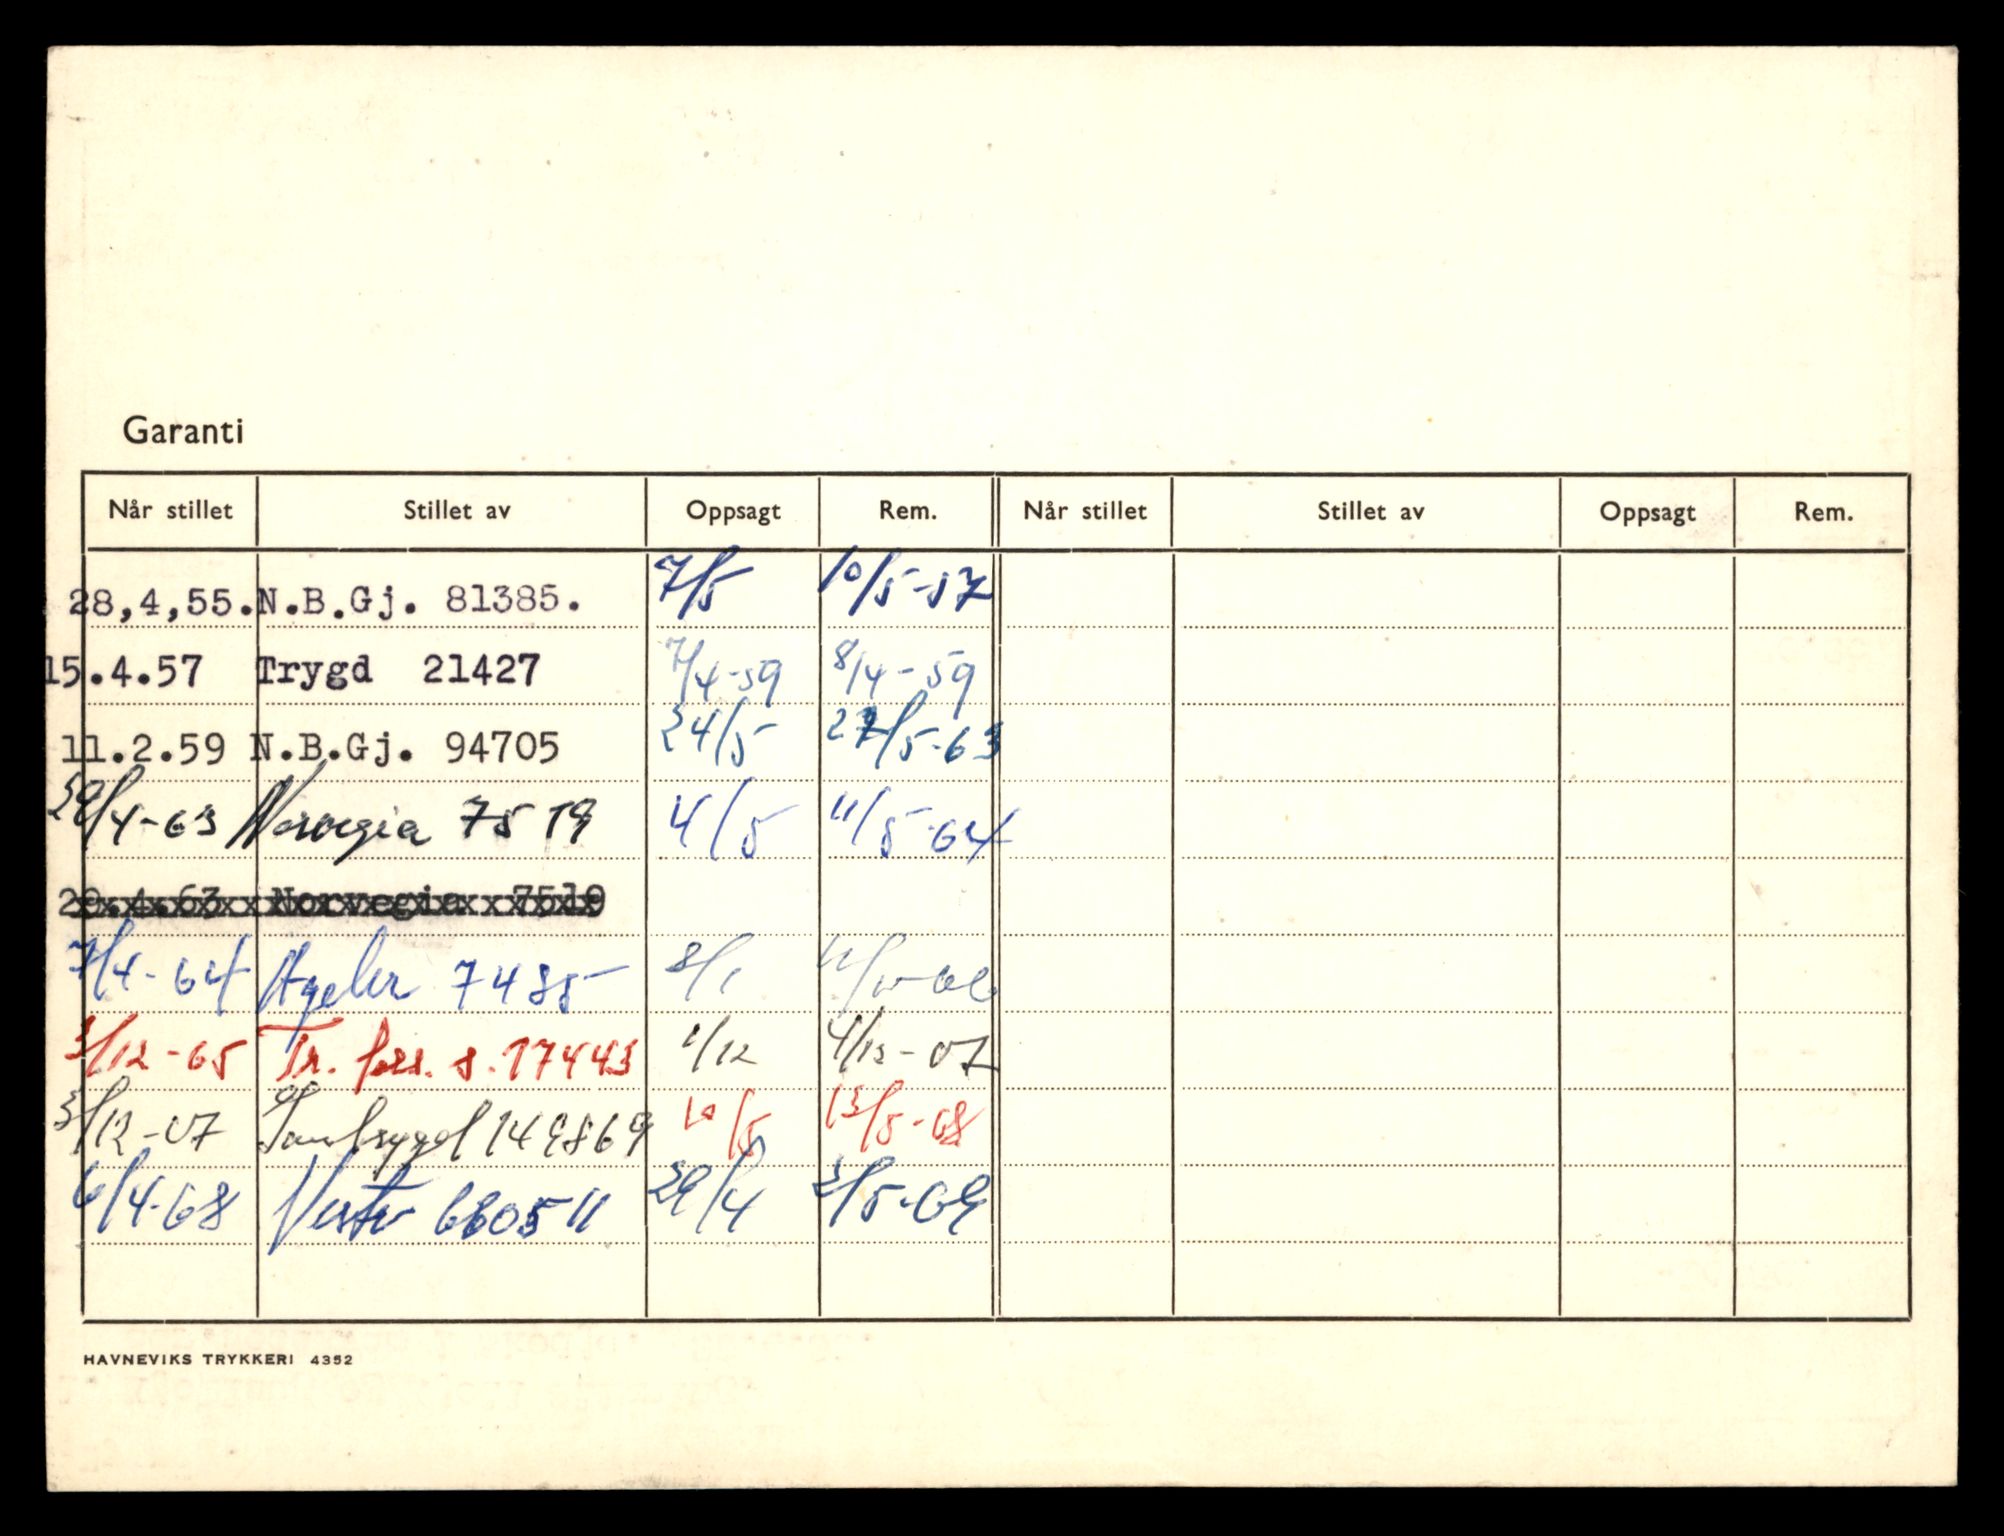 Garanti
Når stillet Stillet av Oppsagt Rem. Når stillet Stillet av Oppsagt Rem.
28,4,55. N.B.Gj. 81385. 7/5 10/5-57
15.4.57 Trygd 21427 7/4-59 8/4-59
11.2.59 N.B.Gj. 94705 24/5 27/5-63
29/4-63 Norvegia 7519 4/5 11/5-64
29.4.63 Norvegia 7519
7/4-64 7485 8/1
3/12-65 Tr. fors. s. 17443 1/12 4/12-67
3/12-67 Samtrygd 149869 10/5 13/5-68
6/4-68 Vesta 660511 29/4 2/5-69
HAVNEVIKS TRYKKERI 4352